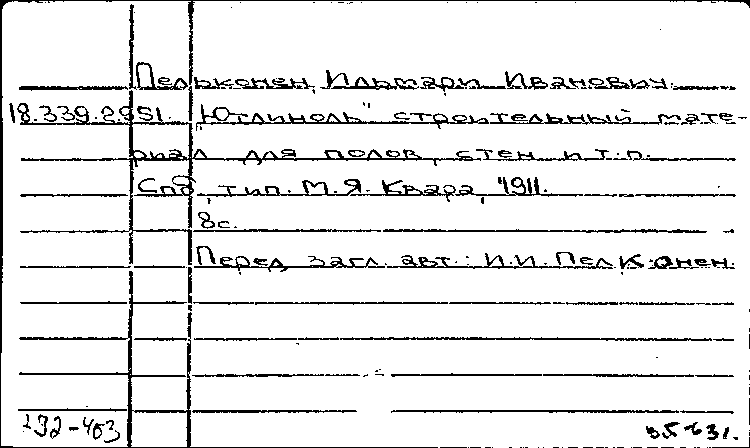 Пельконен, Ильмари Иванович.
18.339.2.951. "Ютлиноль" строительный мате-
риал для полов, стен и т.п.
Спб, тип. М.Я. Квара, 1911.
8с.
Перед загл. авт.: И.И. Пелконен.
292-403